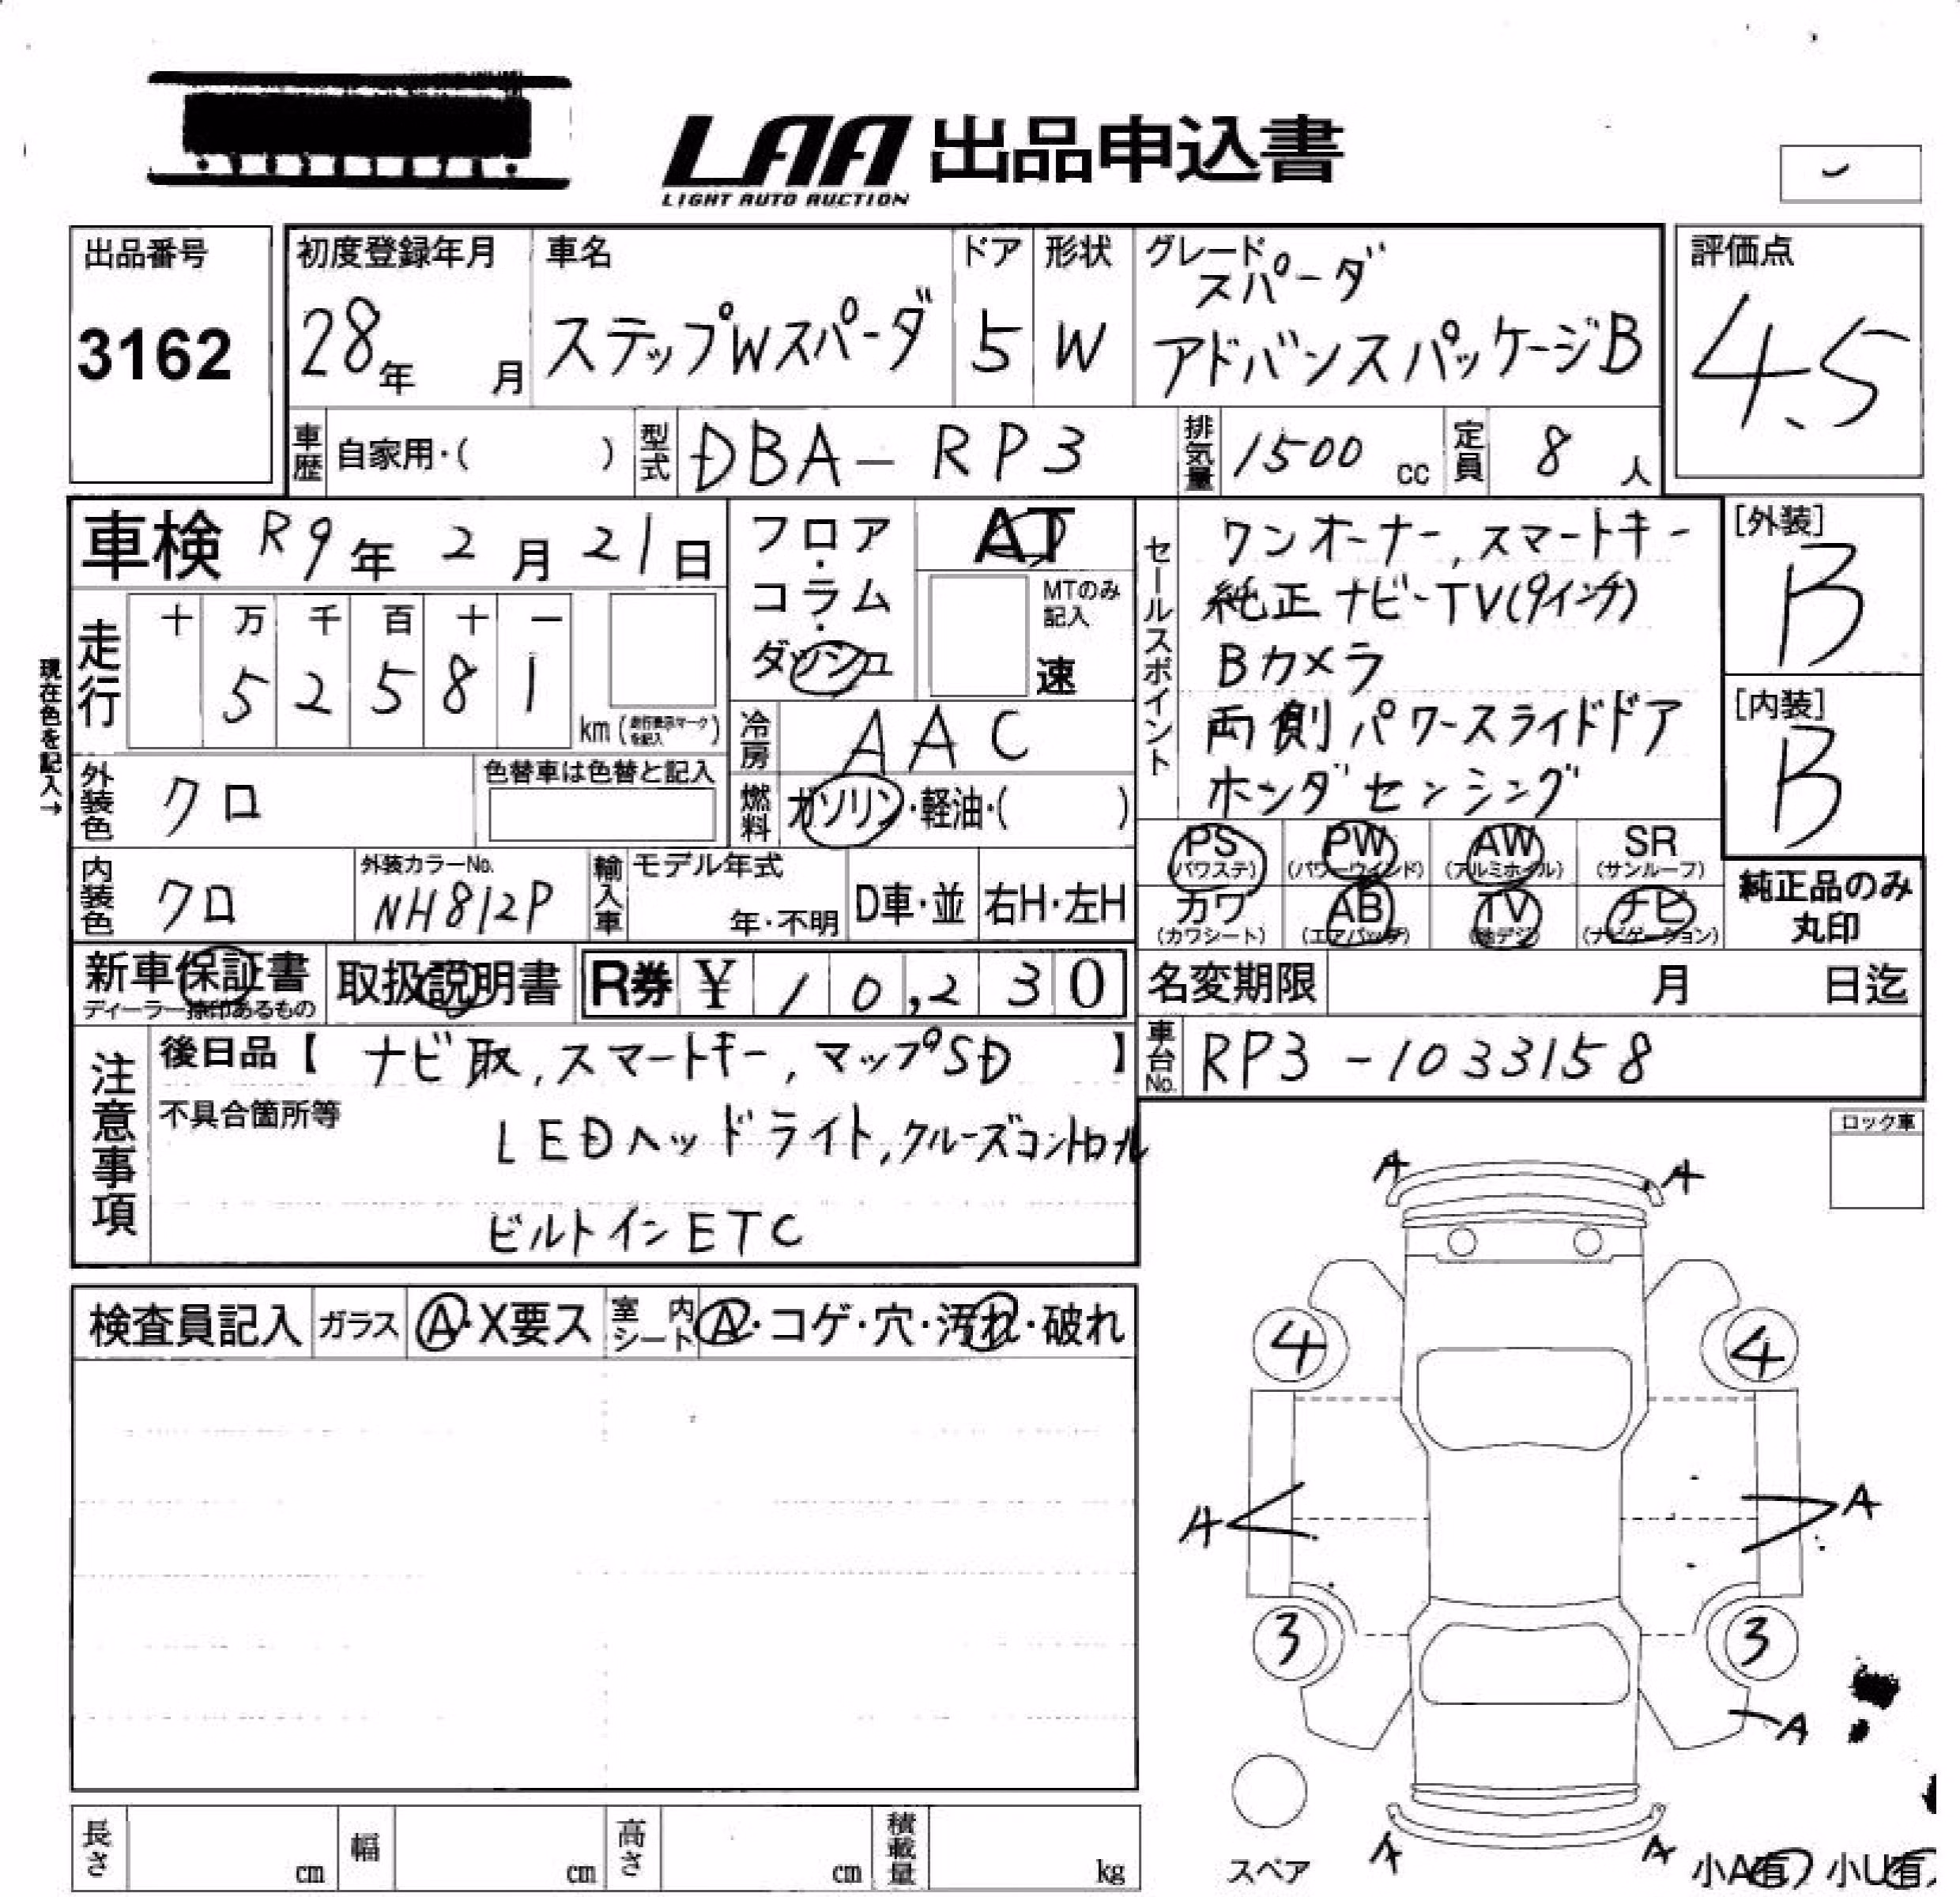 LAA 出品申込書
LIGHT AUTO AUCTION
出品番号
3162
初度登録年月
28年 月
車名
ステップWスパーダ
ドア
5
形状
W
グレード
スパーダ
アドバンスパッケージB
評価点
4.5
車歴 自家用・( )
型式 DBA-RP3
排気量 1500 cc
定員 8 人
車検 R9年 2月 21日
現在色を記入→
走行
十 万 千 百 十 一
5 2 5 8 1
km (走行表示マークを記入)
フロア・コラム・ダッシュ
AT
MTのみ記入
速
冷房 AAC
燃料 ガソリン・軽油・( )
外装色 クロ
色替車は色替と記入
内装色 クロ
外装カラーNo.
NH812P
輸入車
モデル年式
年・不明
D車・並
右H・左H
セールスポイント
ワンオーナー, スマートキー
純正ナビ-TV(9インチ)
Bカメラ
両側パワースライドドア
ホンダセンシング
[外装]
B
[内装]
B
PS (パワステ)
PW (パワーウインド)
AW (アルミホイル)
SR (サンルーフ)
カワ (カワシート)
AB (エアバッグ)
TV (地デジ)
ナビ (ナビゲーション)
純正品のみ
丸印
新車保証書
ディーラー捺印あるもの
取扱説明書
R券 ¥ 10,230
名変期限 月 日迄
車台No. RP3-1033158
注意事項
後日品【 ナビ取, スマートキー, マップSD 】
不具合箇所等
LEDヘッドライト, クルーズコントロール
ビルトインETC
ロック車
検査員記入
ガラス A・X要ス
室内シート A・コゲ・穴・汚れ・破れ
A A
4 4
A A
3 3
A
A A
スペア
小A有 小U有
長さ cm
幅 cm
高さ cm
積載量 kg